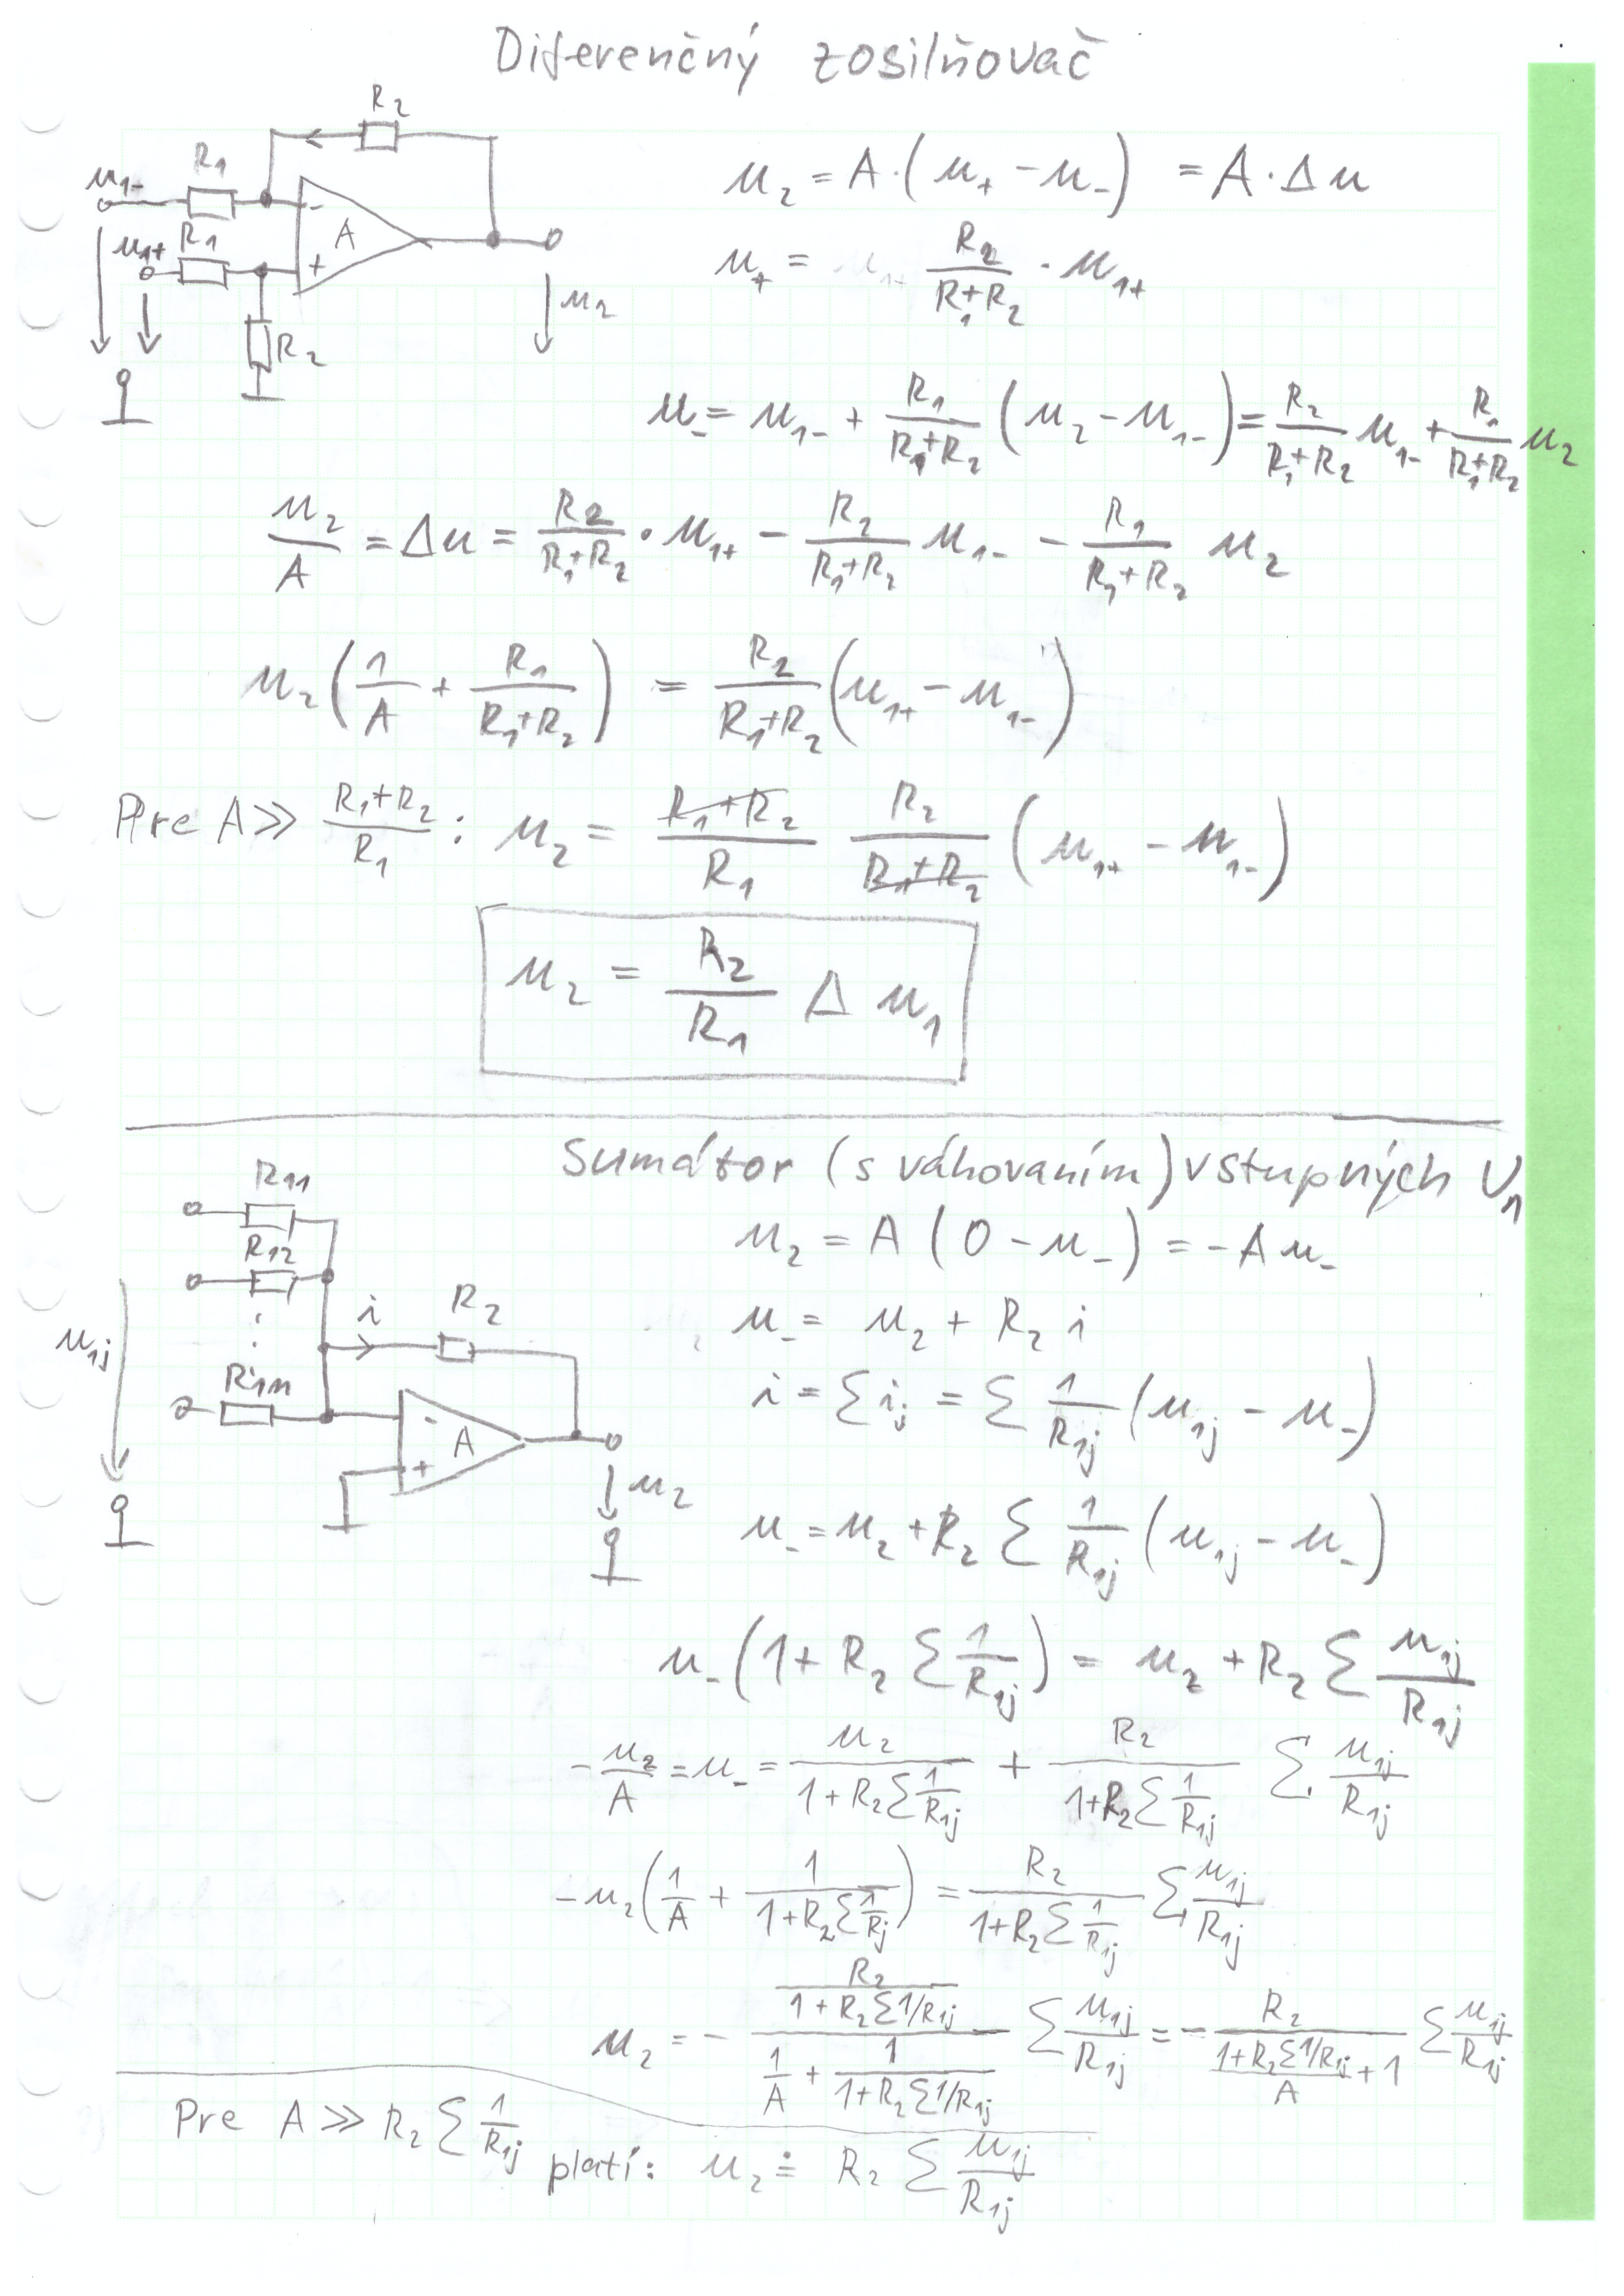 Diferenčný zosilňovač
R₂
R₁
u₁₋
u₁₊ R₁
- A +
u₂
R₂
u₂ = A·(u₊ - u₋) = A·Δu
u₊ = R₂/(R₁+R₂) · u₁₊
u₋ = u₁₋ + R₁/(R₁+R₂) (u₂ - u₁₋) = R₂/(R₁+R₂) u₁₋ + R₁/(R₁+R₂) u₂
u₂/A = Δu = R₂/(R₁+R₂) · u₁₊ - R₂/(R₁+R₂) u₁₋ - R₁/(R₁+R₂) u₂
u₂ (1/A + R₁/(R₁+R₂)) = R₂/(R₁+R₂) (u₁₊ - u₁₋)
Pre A ≫ (R₁+R₂)/R₁ : u₂ = (R₁+R₂)/R₁ R₂/(R₁+R₂) (u₁₊ - u₁₋)
u₂ = R₂/R₁ Δ u₁
Sumátor (s váhovaním) vstupných U₁
R₁₁
R₁₂
⋮
R₁ₙ
u₁ⱼ
i
R₂
- A +
u₂
u₂ = A (0 - u₋) = -A u₋
u₋ = u₂ + R₂ i
i = Σ iⱼ = Σ 1/R₁ⱼ (u₁ⱼ - u₋)
u₋ = u₂ + R₂ Σ 1/R₁ⱼ (u₁ⱼ - u₋)
u₋ (1 + R₂ Σ 1/R₁ⱼ) = u₂ + R₂ Σ u₁ⱼ/R₁ⱼ
-u₂/A = u₋ = u₂/(1 + R₂ Σ 1/R₁ⱼ) + R₂/(1+R₂ Σ 1/R₁ⱼ) Σ u₁ⱼ/R₁ⱼ
-u₂ (1/A + 1/(1+R₂ Σ 1/Rⱼ)) = R₂/(1+R₂ Σ 1/R₁ⱼ) Σ u₁ⱼ/R₁ⱼ
u₂ = - (R₂/(1+R₂ Σ1/R₁ⱼ))/(1/A + 1/(1+R₂ Σ1/R₁ⱼ)) Σ u₁ⱼ/R₁ⱼ = - R₂/((1+R₂ Σ1/R₁ⱼ)/A + 1) Σ u₁ⱼ/R₁ⱼ
Pre A ≫ R₂ Σ 1/R₁ⱼ platí: u₂ ≐ R₂ Σ u₁ⱼ/R₁ⱼ